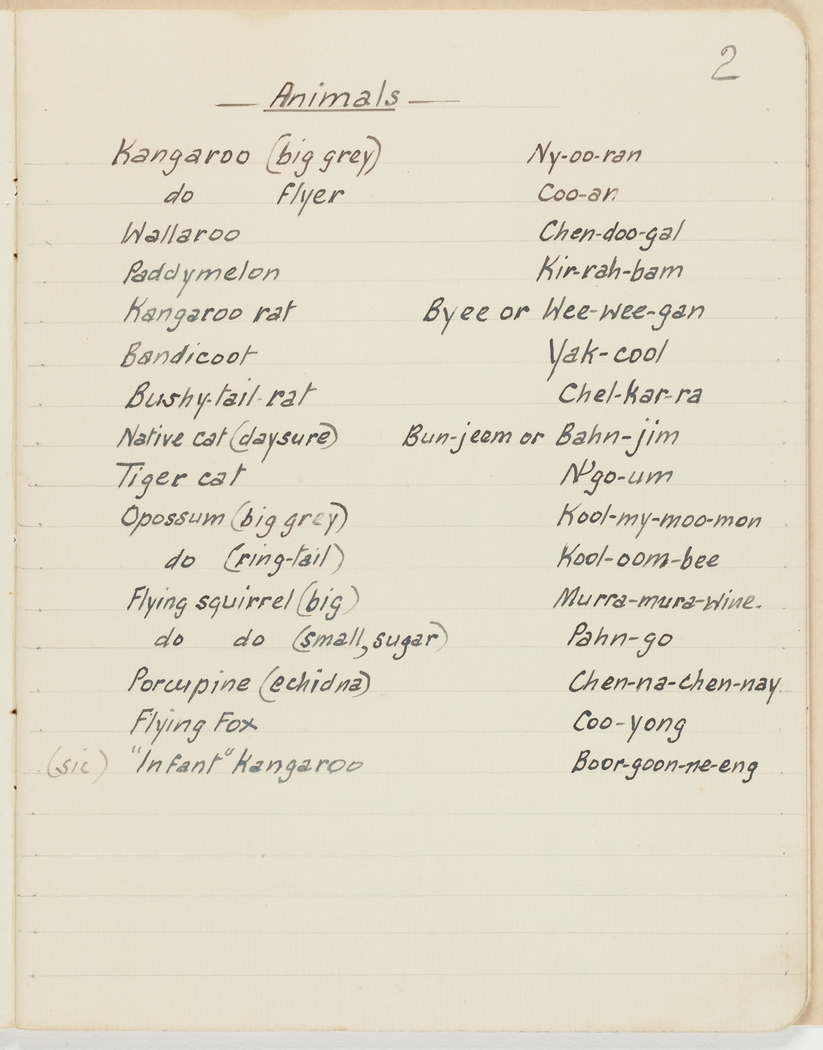 2
— Animals —
Kangaroo (big grey) Ny-oo-ran
do flyer Coo-an
Wallaroo Chen-doo-gal
Paddymelon Kir-rah-bam
Kangaroo rat Byee or Wee-wee-gan
Bandicoot Yak-cool
Bushy-tail-rat Chel-kar-ra
Native cat (daysure) Bun-jeem or Bahn-jim
Tiger cat N'go-um
Opossum (big grey) Kool-my-moo-mon
do (ring-tail) Kool-oom-bee
Flying squirrel (big) Murra-mura-wine.
do do (small, sugar) Pahn-go
Porcupine (echidna) Chen-na-chen-nay
Flying Fox Coo-yong
(sic) "Infant" Kangaroo Boor-goon-ne-eng